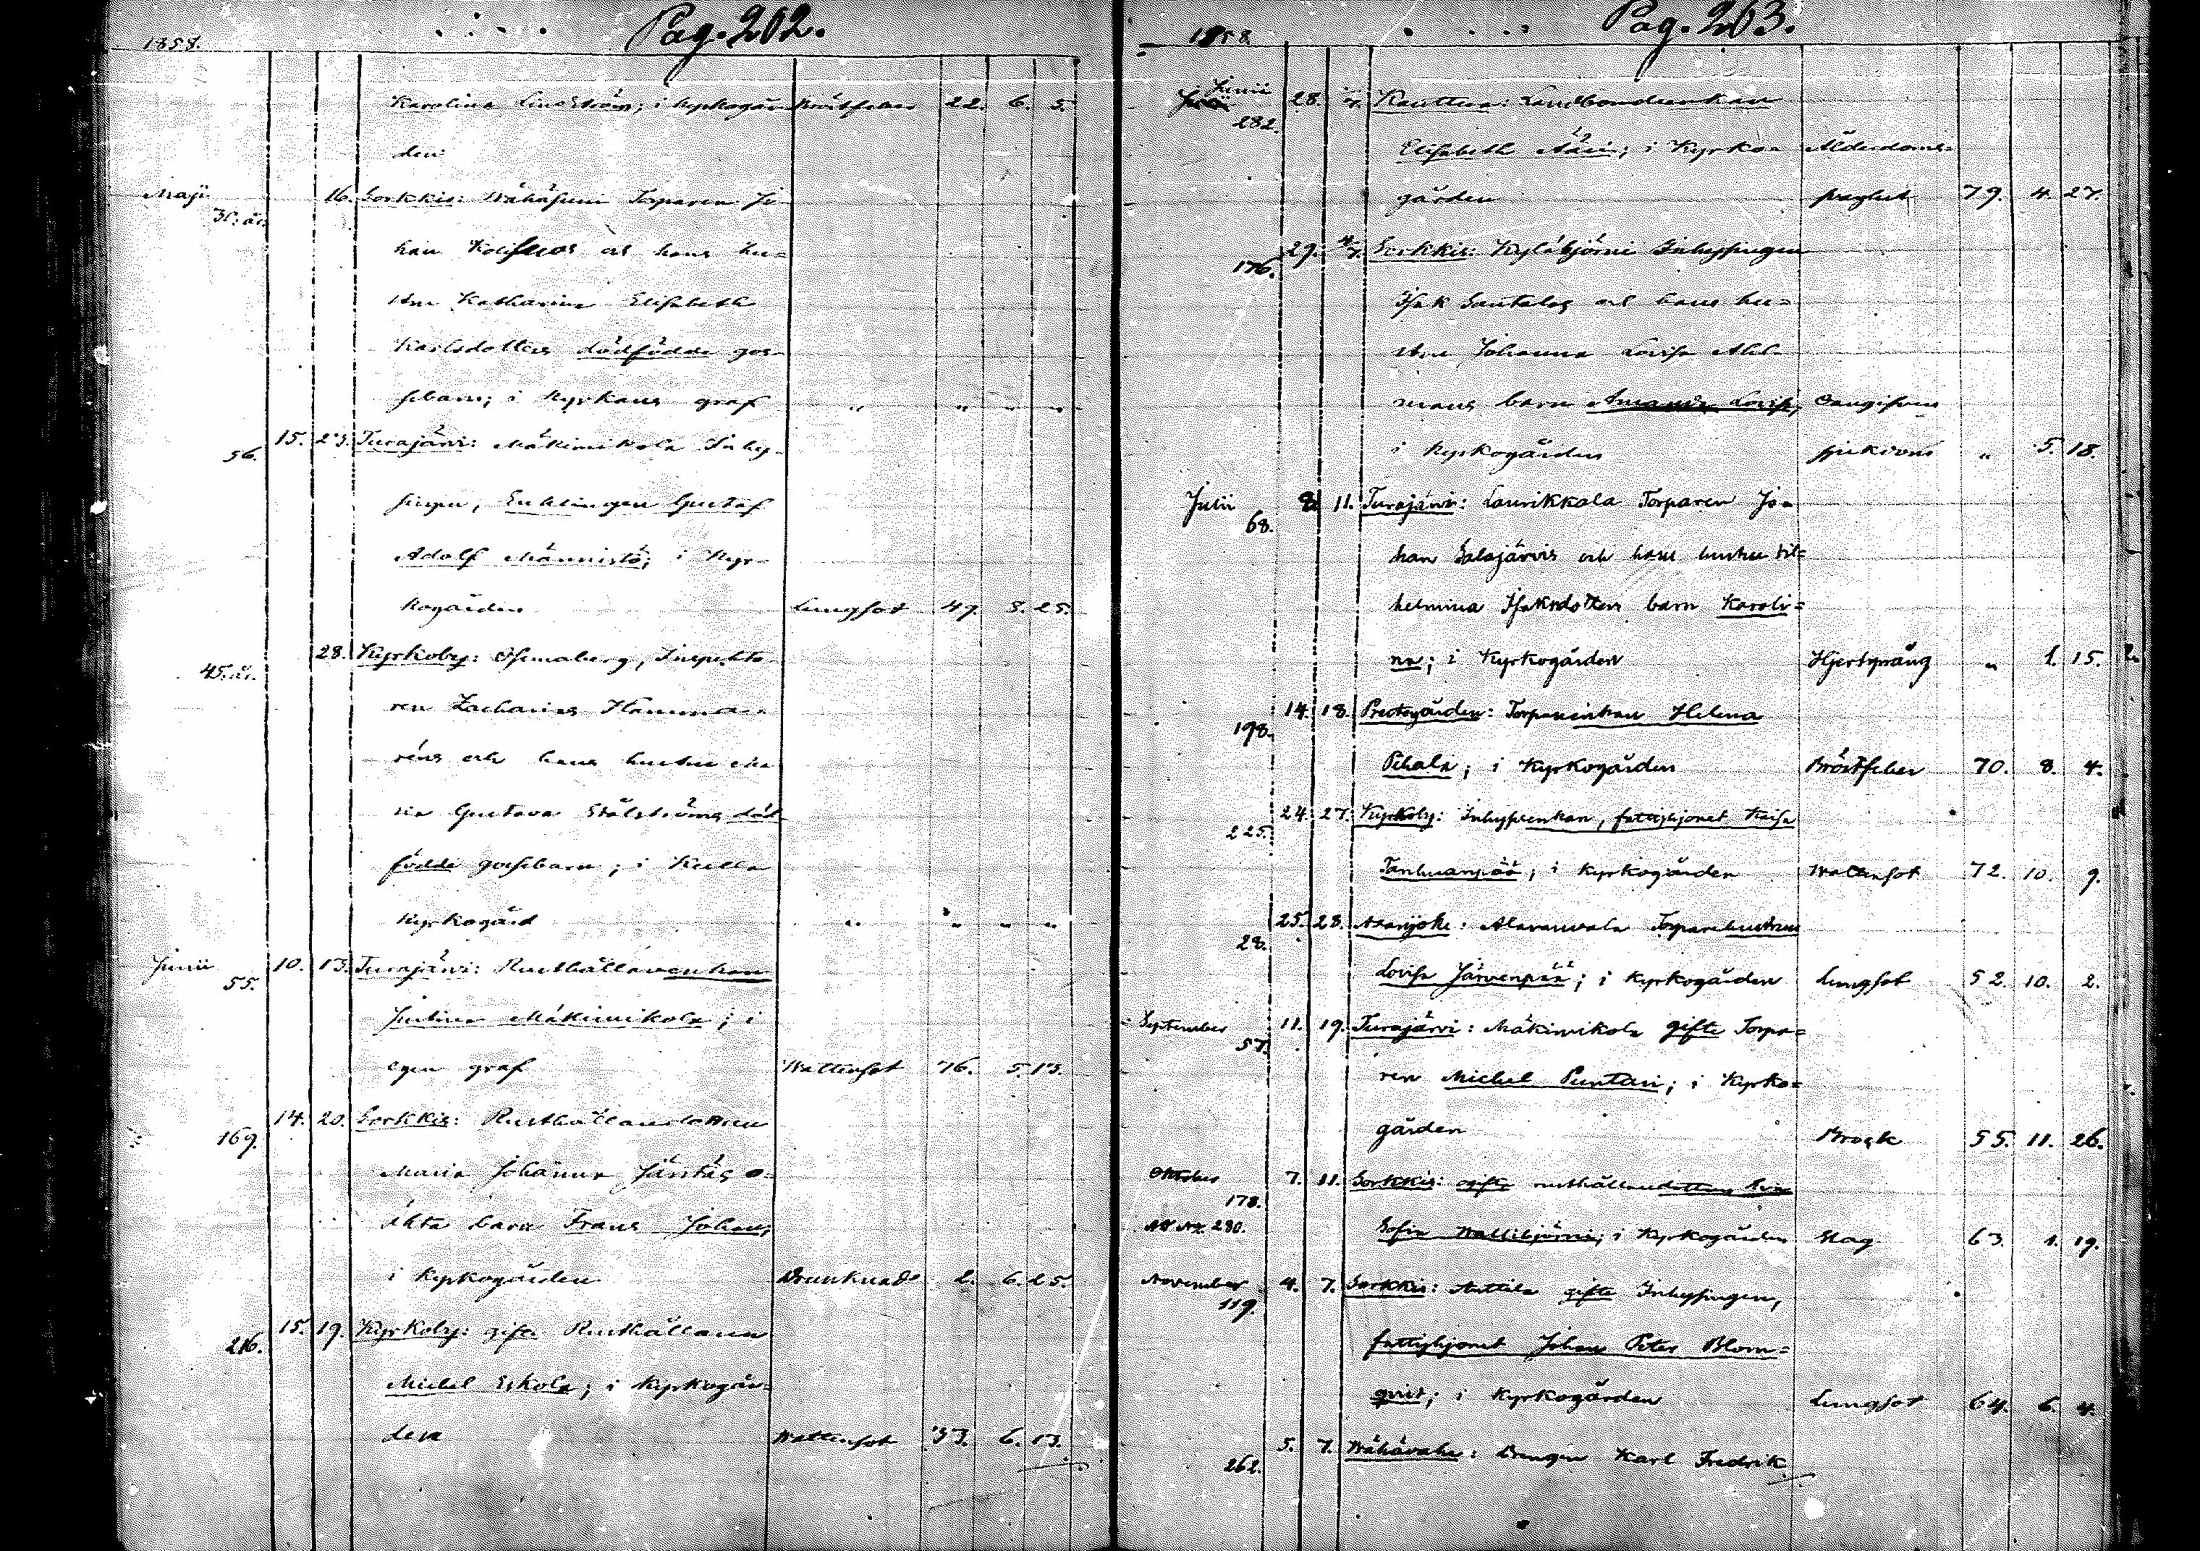 Pag. 202.
1858.
Karolina Lindström; i kyrkogår- Bröstfeber 22. 6. 5.
den
Maji 16. Sorkkis: Wähäsuni Torparen Jo
30.
han och hans hu-
stru Katharina Elisabeth
Karlsdotters dödfödde gos-
sebarn; i Kyrkans graf " " " "
56. 15. 23. Turajärvi: Mäkimikola Inhy-
singen, Enklingen Gustaf
Adolf Männistö; i Kyr-
kogården Lungsot 47. 3. 25.
45. 28. Kyrkoby: Inspekto-
ren Zacharias Hammar-
réns och hans hustru Ma
ria Gustava Stålströms död-
födde gossebarn; i Kulla
Kyrkogård " " " "
Junii 55. 10. 13. Turajärvi: Rusthållarenkan
Justina Mäkimikola; i
egen graf Wattensot 76. 5. 13.
169. 14. 20. Sorkkis: Rusthållaredottren
Maria Johanna o-
äkta barn Frans Johan;
i Kyrkogården Drunknade 2. 6. 25.
216. 15. 19. Kyrkoby: gifte Rusthållaren
Michel Eskola; i Kyrkogår-
den Wattensot 53. 6. 13.
Pag. 203.
1858
Junii 282. 28. Kauttua: Landbondeenkan
Elisabeth i Kyrko- Ålderdoms-
gården 79. 4. 27.
176. 29. 4/7. Sorkkis: Kyläbjörni Inhysingen
Isak Santalas och hans hu-
stru Johanna Lovisa Ahl-
mans barn Amanda Lovisa,
i Kyrkogården " 5. 18.
Julii 68. 8. 11. Turajärvi: Laurikkala Torparen Jo-
han Salajärvis och hans hustru Vil-
helmina Isaksdotters barn Karoli-
na; i Kyrkogården Hjertsprång " 1. 15.
198. 14. 18. Prestgården: Torpareenkan Helena
Pihala; i Kyrkogården Bröstfeber 70. 8. 4.
225. 24. 27. Kyrkoby: Inhysesenkan, fattighjonet Kaisa
Tanhuanpää; i Kyrkogården Wattensot 72. 10. 9.
28. 25. 28. Naarjoki: Torparehustrun
Lovisa Järvenpää; i Kyrkogården Lungsot 52. 10. 2.
September 57. 11. 19. Turajärvi: Mäkimikola gifte Torpa-
ren Michel Puntari; i Kyrko-
gården Bråck 55. 11. 26.
Oktober 178. 7. 11. Sorkkis: ogifta rusthållaredottren
280. Sofia Wallibjörni; i Kyrkogården Slag 63. 1. 19.
November 119. 4. 7. Sorkkis: Anttila gifte Inhysingen,
fattighjonet Johan Peter Blom-
qvist; i Kyrkogården Lungsot 64. 6. 4.
262. 5. 7. Wähävahe: Drengen Karl Fredrik